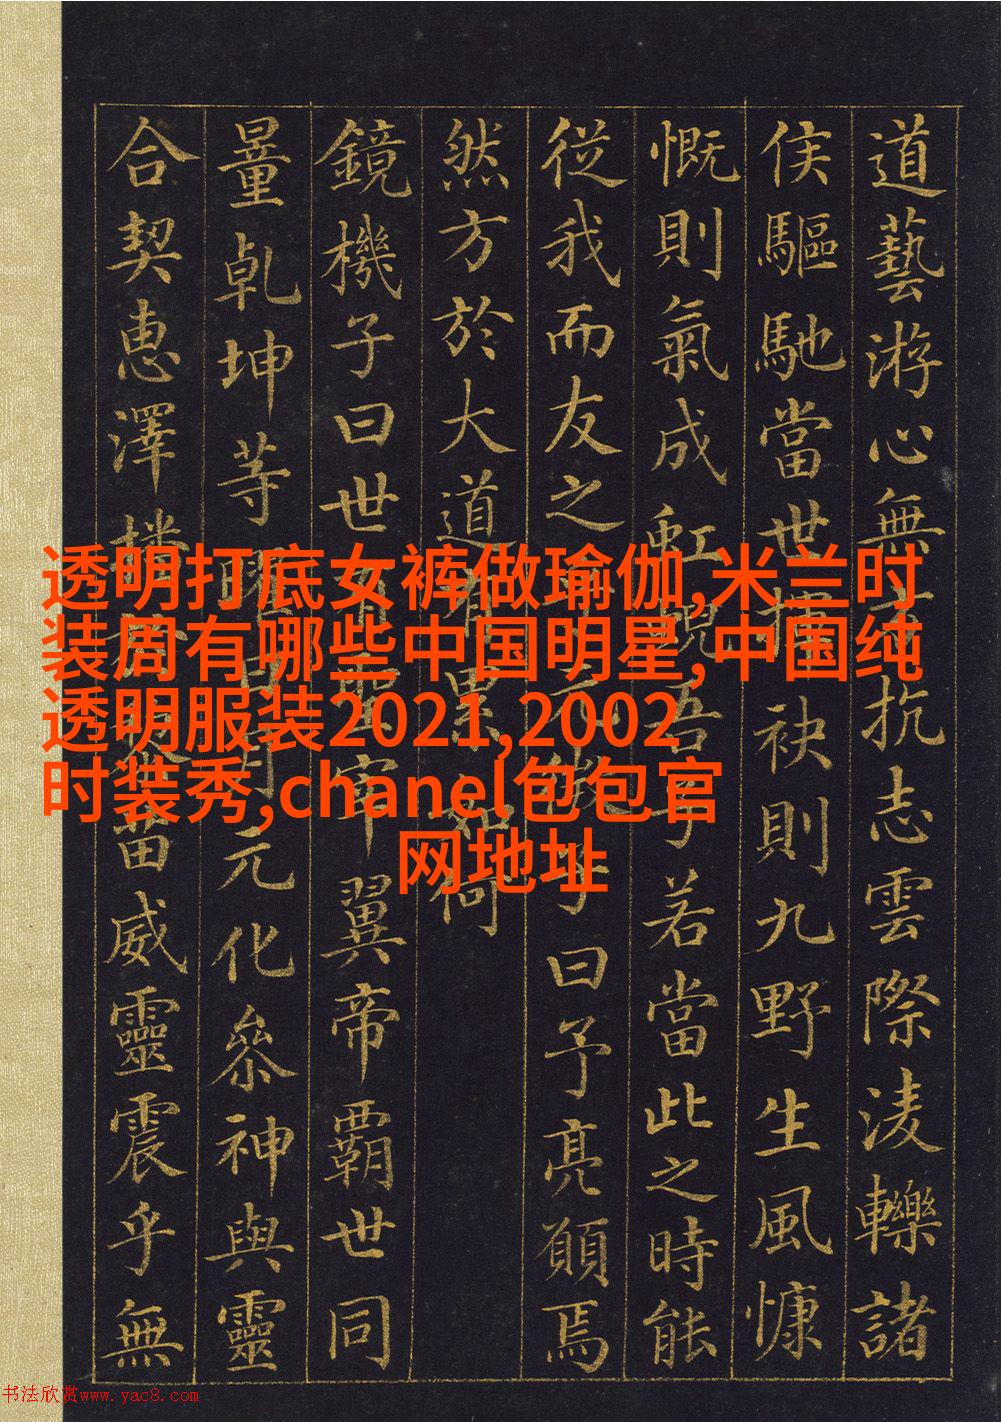 道藝游心無方抗志雲際淩轢諸
侯驅馳當世揮袂則九野生風慷
慨則氣成虹蜺吾子若當此之時能
從我而友之子曰予亮願焉
然方於大道有累如何
鏡機子曰世宰翼帝霸世同
量乾坤等曜日月元化參神與靈
合契惠澤播苗威靈震乎無
透明打底女裤做瑜伽,米兰时
装周有哪些中国明星,中国纯
透明服装2021,2002
时装秀,chanel包包官
网地址
书法欣赏www.yac8.com